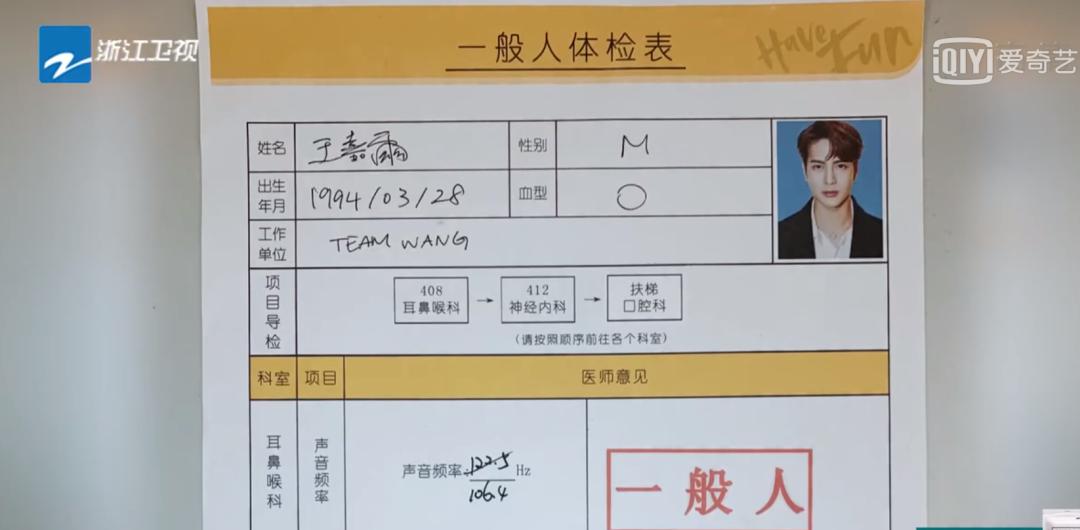 浙江卫视
一般人体检表
Have Fun
iQIYI 爱奇艺
姓名 王嘉爾 性别 M
出生年月 1994/03/28 血型 O
工作单位 TEAM WANG
项目导检
408 耳鼻喉科 → 412 神经内科 → 扶梯 口腔科
(请按照顺序前往各个科室)
科室 项目 医师意见
耳鼻喉科 声音频率 声音频率: 122.5 Hz
106.4
一般人